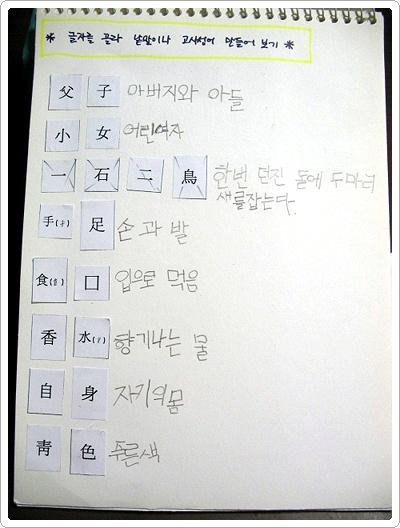 * 글자를 골라 낱말이나 고사성어 만들어 보기 *
父 子 아버지와 아들
小 女 어린여자
一 石 二 鳥 한번 던진 돌에 두마리
새를잡는다.
手(扌) 足 손과 발
食(飠) 口 입으로 먹음
香 水(氵) 향기나는 물
自 身 자기의몸
靑 色 푸른색